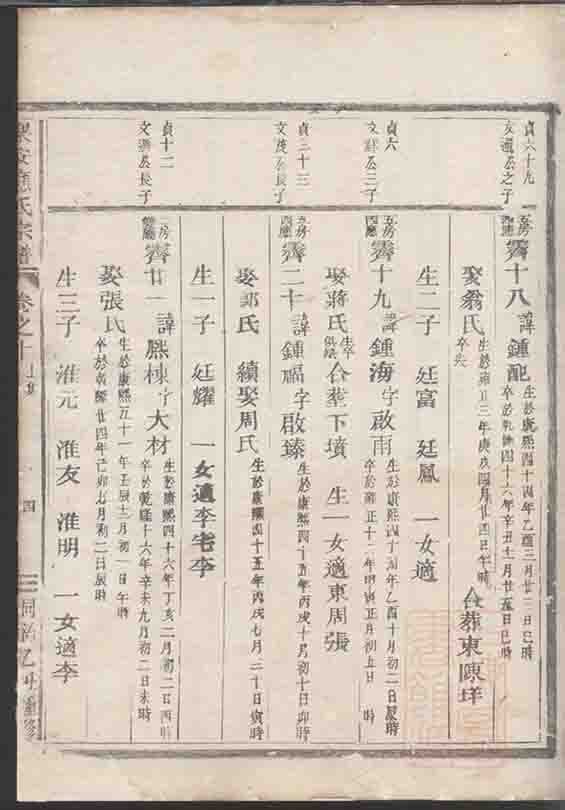 貞六十九
文邁公之子
五房四廳 霽十八 諱 鍾配 生於康熙四十四年乙酉三月廿三日巳時
卒於乾隆四十六年辛丑十一月廿五日巳時
娶翁氏 生於雍正三年 四月廿四日午時
卒失
合葬東陳垟
生二子 廷富 廷鳳 一女適
貞六
文 公三子
五房四廳 霽十九 諱 鍾海 字 啟雨 生於康熙四十四年乙酉十月初二日辰時
卒於雍正十二年甲寅正月初五日 時
娶蔣氏 生卒俱缺 合葬下墳 生一女適東周張
貞三十三
文茂公長子
五房四廳 霽二十 諱 鍾福 字 啟臻 生於康熙四十五年丙戌十月初十日卯時
娶郭氏 續娶周氏 生於康熙四十五年丙戌七月三十日寅時
生一子 廷耀 一女適李宅李
貞十二
文 公長子
霽廿一 諱 熙棟 字 大材 生於康熙四十六年丁亥二月初二日酉時
卒於乾隆十六年辛未九月初二日未時
娶張氏 生於康熙五十一年壬辰十二月初一日午時
卒於乾隆廿四年己卯七月初二日辰時
生三子 淮元 淮友 淮明 一女適李
氏宗譜
卷之十
四
同治乙丑重修